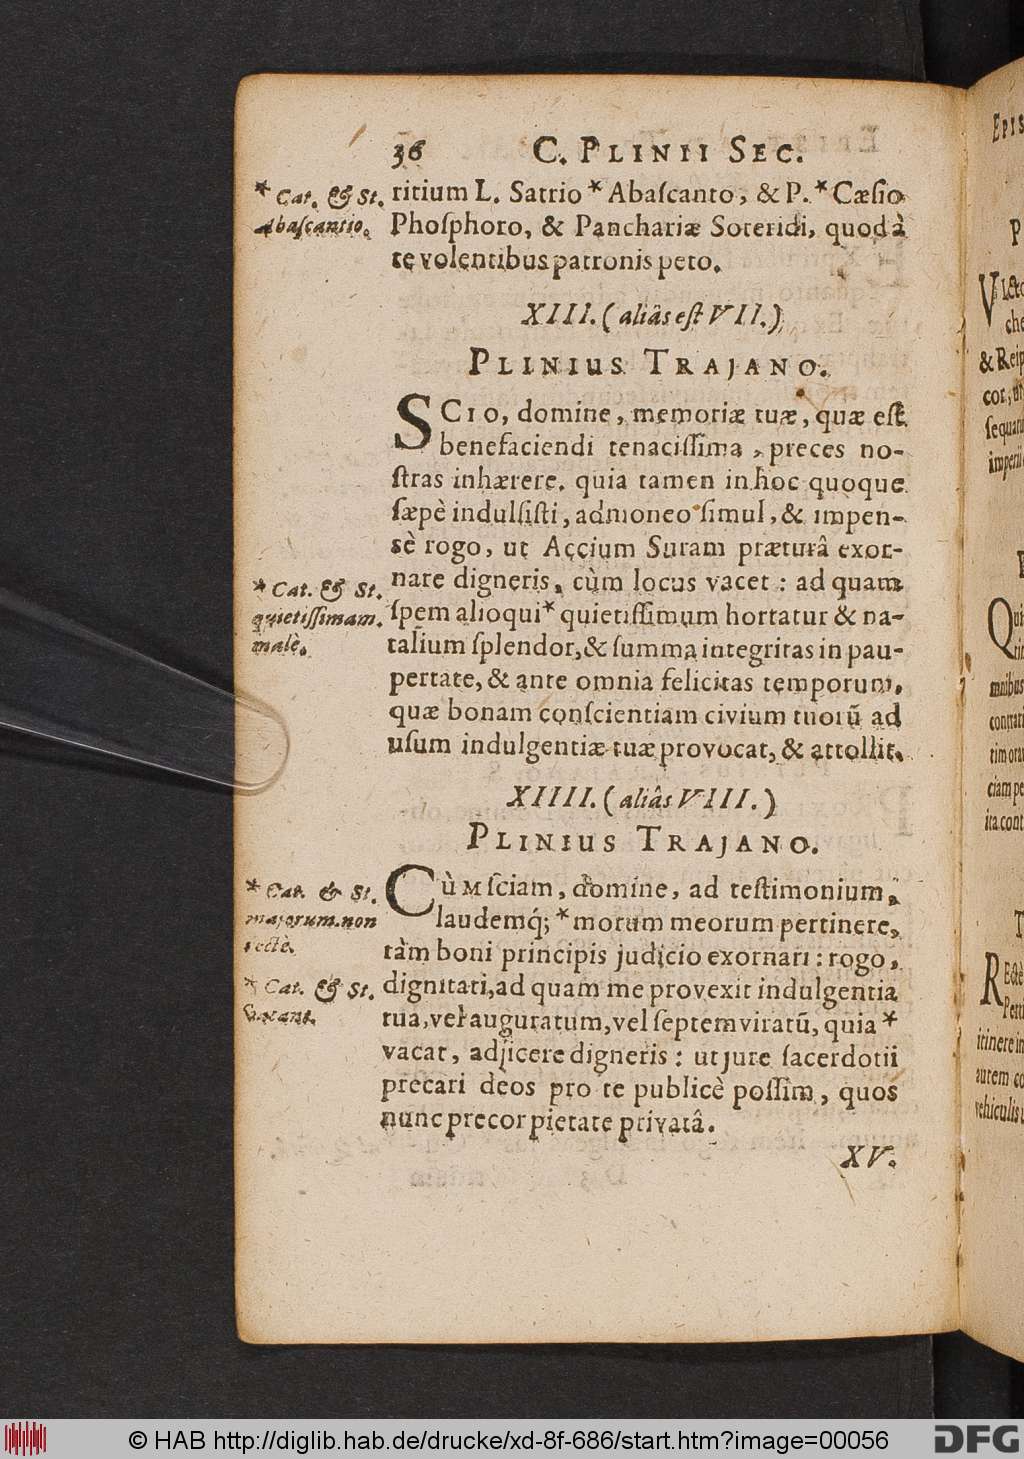 36 C. PLINII SEC.
* Cat. & St.
Abaſcantio.
ritium L. Satrio * Abaſcanto, & P. * Cæſio
Phoſphoro, & Panchariæ Soteridi, quod à
te volentibus patronis peto.
XIII. (aliâs eſt VII.)
PLINIUS TRAJANO.
SCIO, domine, memoriæ tuæ, quæ eſt
benefaciendi tenaciſſima, preces no-
ſtras inhærere. quia tamen in hoc quoque
ſæpè indulſiſti, admoneo ſimul, & impen-
sè rogo, ut Accium Suram præturâ exor-
nare digneris, cùm locus vacet: ad quam
* Cat. & St.
quietiſſimam.
malè.
ſpem alioqui * quietiſſimum hortatur & na-
talium ſplendor, & ſumma integritas in pau-
pertate, & ante omnia felicitas temporum,
quæ bonam conſcientiam civium tuorũ ad
uſum indulgentiæ tuæ provocat, & attollit.
XIIII. (aliâs VIII.)
PLINIUS TRAJANO.
* Cat. & St.
majorum. non
rectè.
* Cat. & St.
vacant.
CÙM ſciam, domine, ad teſtimonium,
laudemq́; * morum meorum pertinere,
tàm boni principis judicio exornari: rogo,
dignitati, ad quam me provexit indulgentia
tua, vel auguratum, vel ſeptemviratũ, quia *
vacat, adjicere digneris: ut jure ſacerdotii
precari deos pro te publicè poſſim, quos
nunc precor pietate privatâ.
XV.
EPIS
© HAB http://diglib.hab.de/drucke/xd-8f-686/start.htm?image=00056
DFG